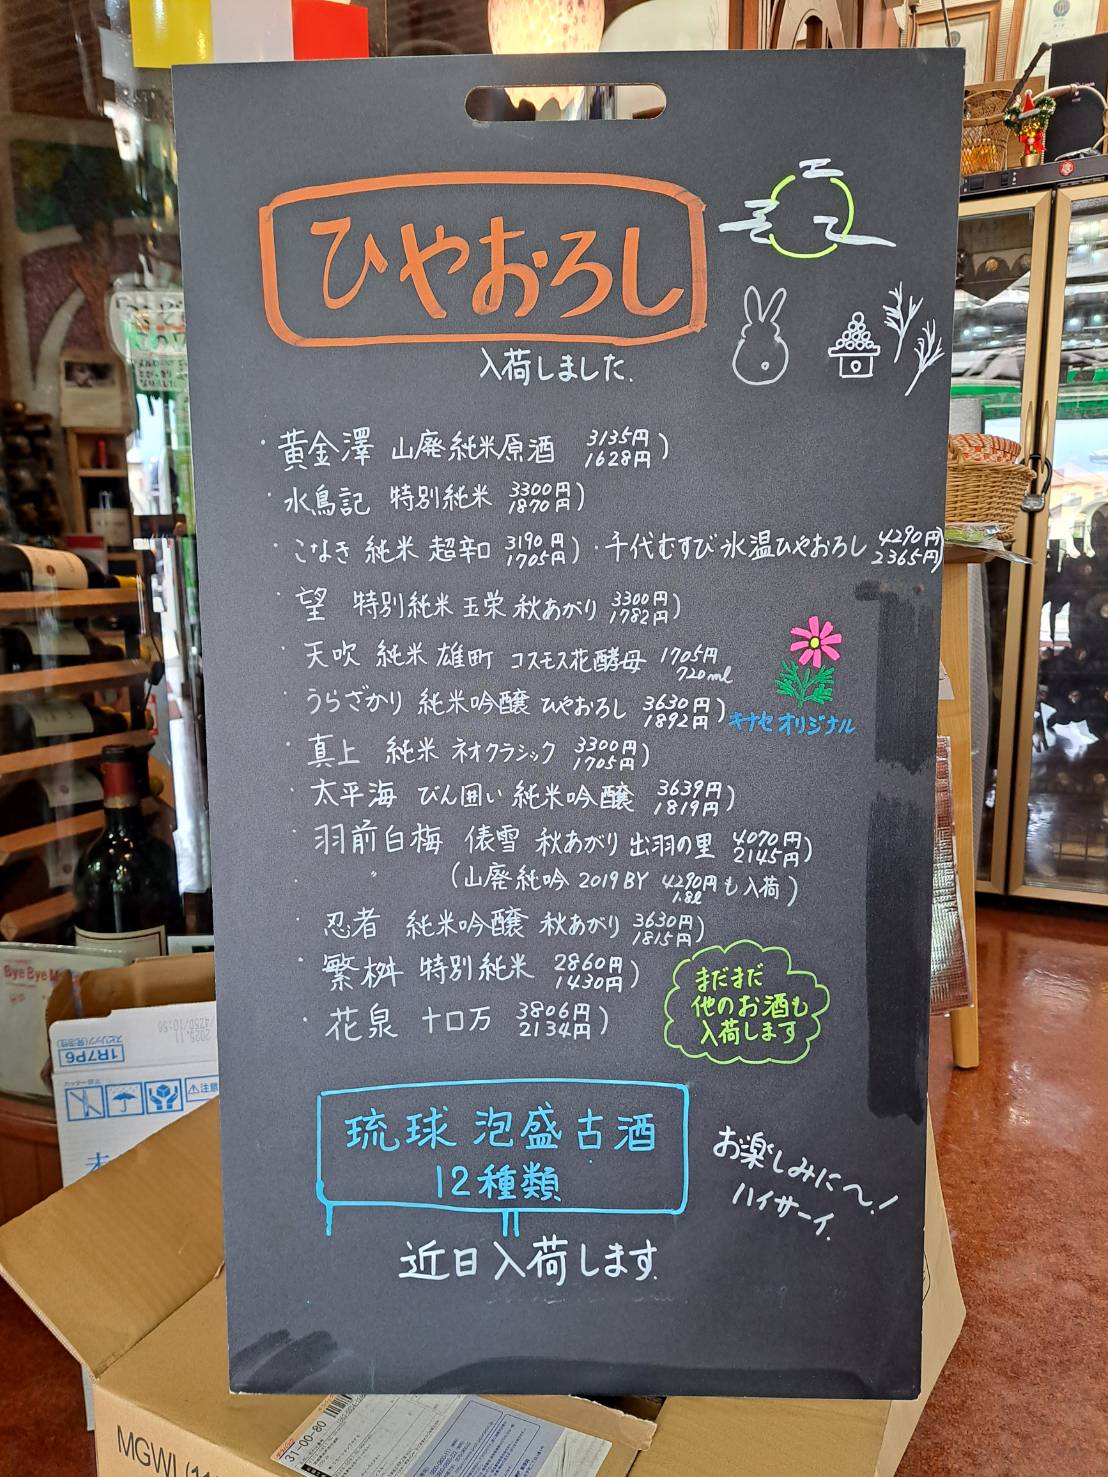 ひやおろし
入荷しました.
・黄金澤 山廃純米原酒 3135円 1628円)
・水鳥記 特別純米 3300円 1870円)
・こなき 純米 超辛口 3190円 1705円) ・千代むすび 氷温ひやおろし 4290円 2365円)
・望 特別純米 玉栄 秋あがり 3300円 1782円)
・天吹 純米 雄町 コスモス花酵母 1705円 720ml
・うらざかり 純米吟醸 ひやおろし 3630円 1892円)
キナセオリジナル
・真上 純米 ネオクラシック 3300円 1705円)
・太平海 びん囲い 純米吟醸 3639円 1819円)
・羽前白梅 俵雪 秋あがり 出羽の里 4070円 2145円)
・ 〃 (山廃純吟 2019BY 4290円 1.8ℓ も入荷)
・忍者 純米吟醸 秋あがり 3630円 1815円)
・繁桝 特別純米 2860円 1430円)
・花泉 十口万 3806円 2134円)
まだまだ
他のお酒も
入荷します
琉球 泡盛古酒
12種類
近日入荷します.
お楽しみに〜!
ハイサーイ.
Bye Bye
1R7P6
注意
31-00-80
MGWL